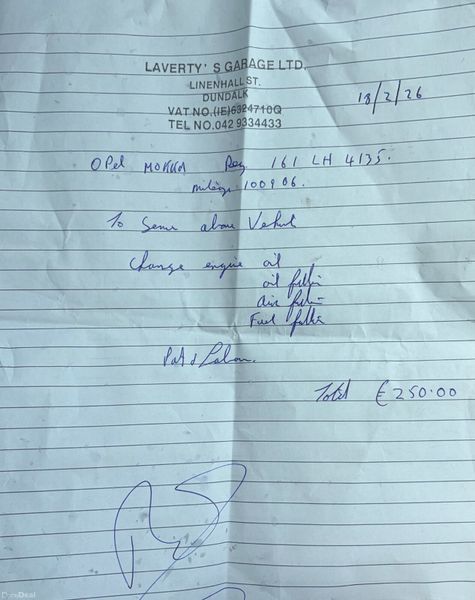 LAVERTY'S GARAGE LTD.
LINENHALL ST.
DUNDALK
VAT NO.(IE)6324710Q
TEL NO.042 9334433
18/2/26
Opel MOKKA Reg 161 LH 4135.
mileage 100906.
To Service above Vehicle
Change engine oil
oil filter
air filter
Fuel filter
Parts & Labour.
Total €250.00
DoneDeal